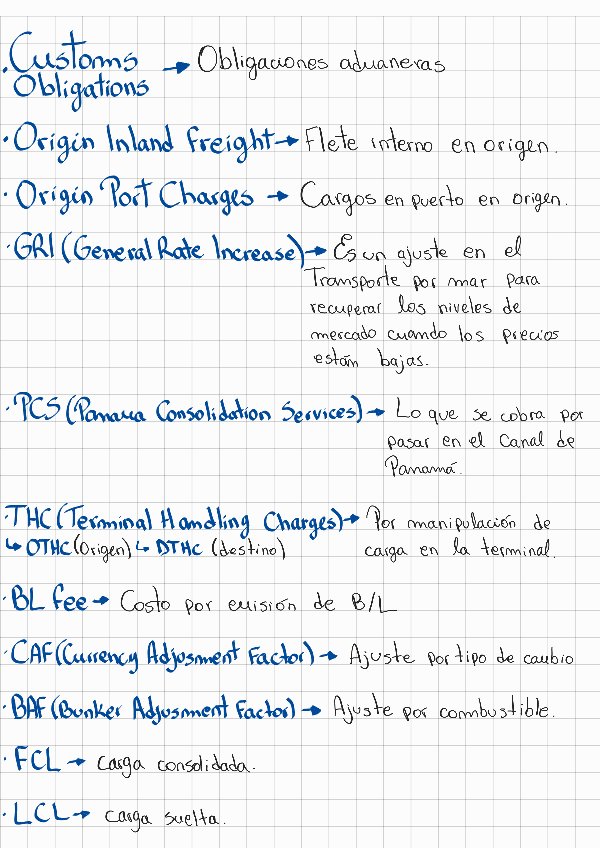 .Customs → Obligaciones aduaneras
Obligations
· Origin Inland Freight → Flete interno en origen.
· Origin Port Charges → Cargos en puerto en origen.
· GRI (General Rate Increase) → Es un ajuste en el
Transporte por mar para
recuperar los niveles de
mercado cuando los precios
están bajas.
· PCS (Panama Consolidation Services) → Lo que se cobra por
pasar en el Canal de
Panamá.
· THC (Terminal Handling Charges) → Por manipulación de
↳ OTHC (Origen) ↳ DTHC (destino) carga en la terminal.
· BL fee → Costo por emisión de B/L
· CAF (Currency Adjosment Factor) → Ajuste por tipo de cambio
· BAF (Bunker Adjusment Factor) → Ajuste por combustible.
· FCL → Carga consolidada.
· LCL → carga suelta.